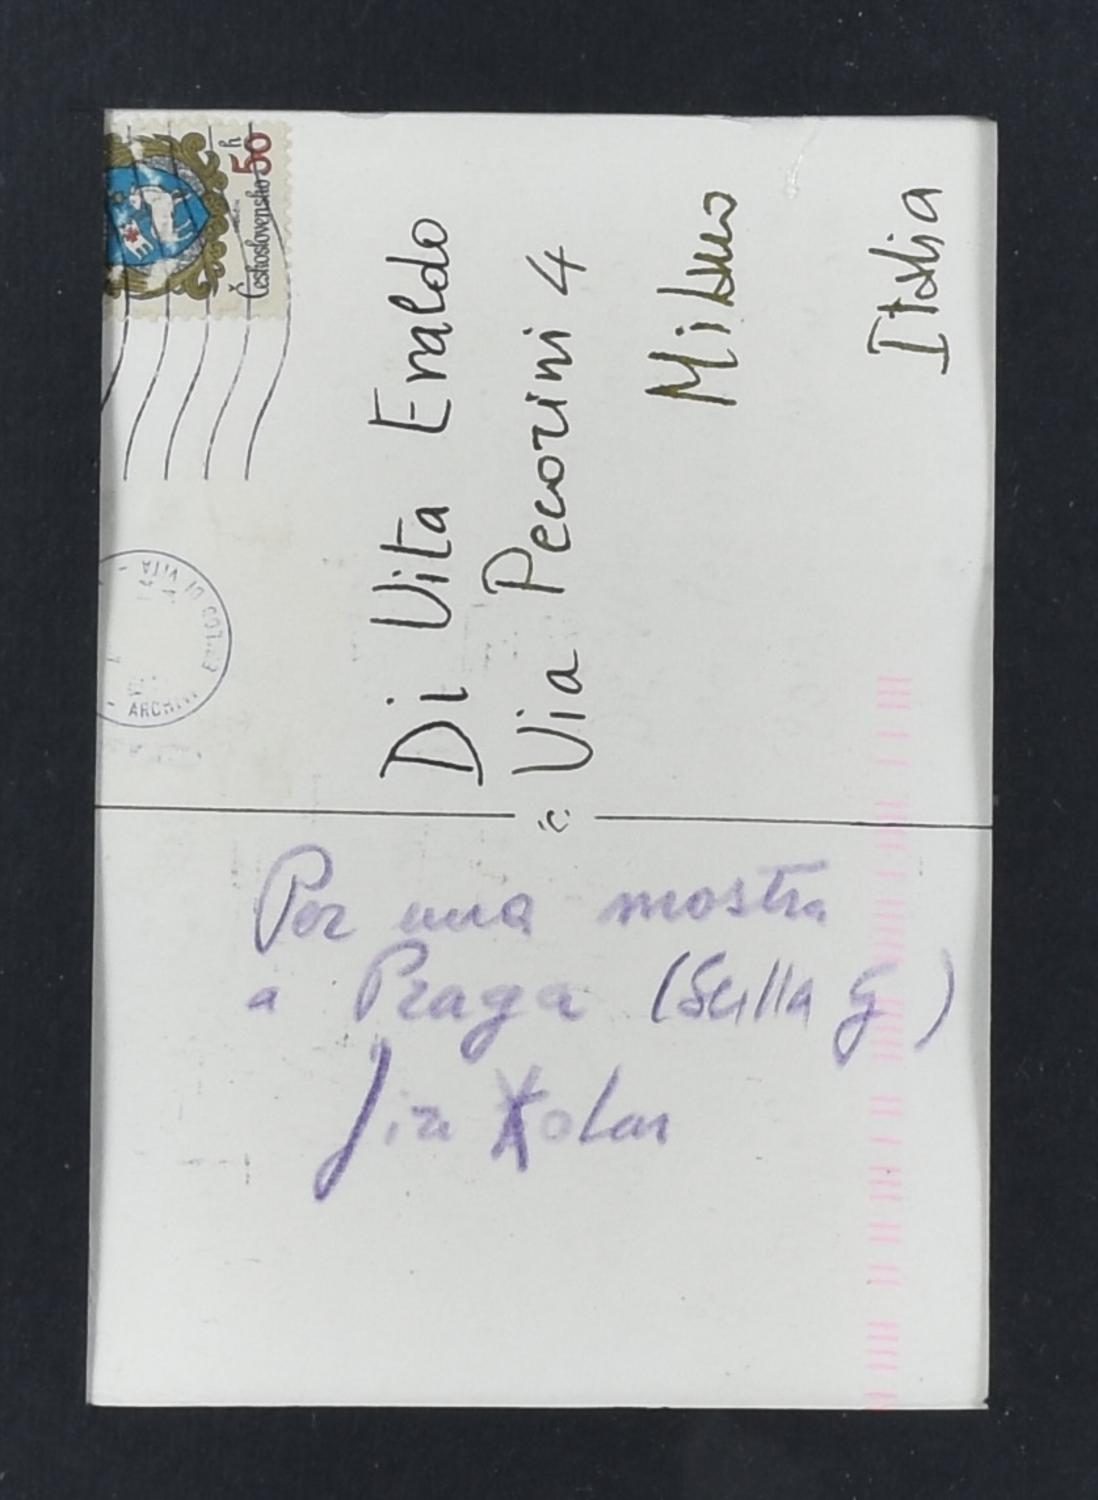 Československo 50 h
Di Vita Eraldo
Via Pecorini 4
Milano
Italia
ARCHIVI
DI VITA
Per una mostra
a Praga (Scilla G)
Jiri Kolar